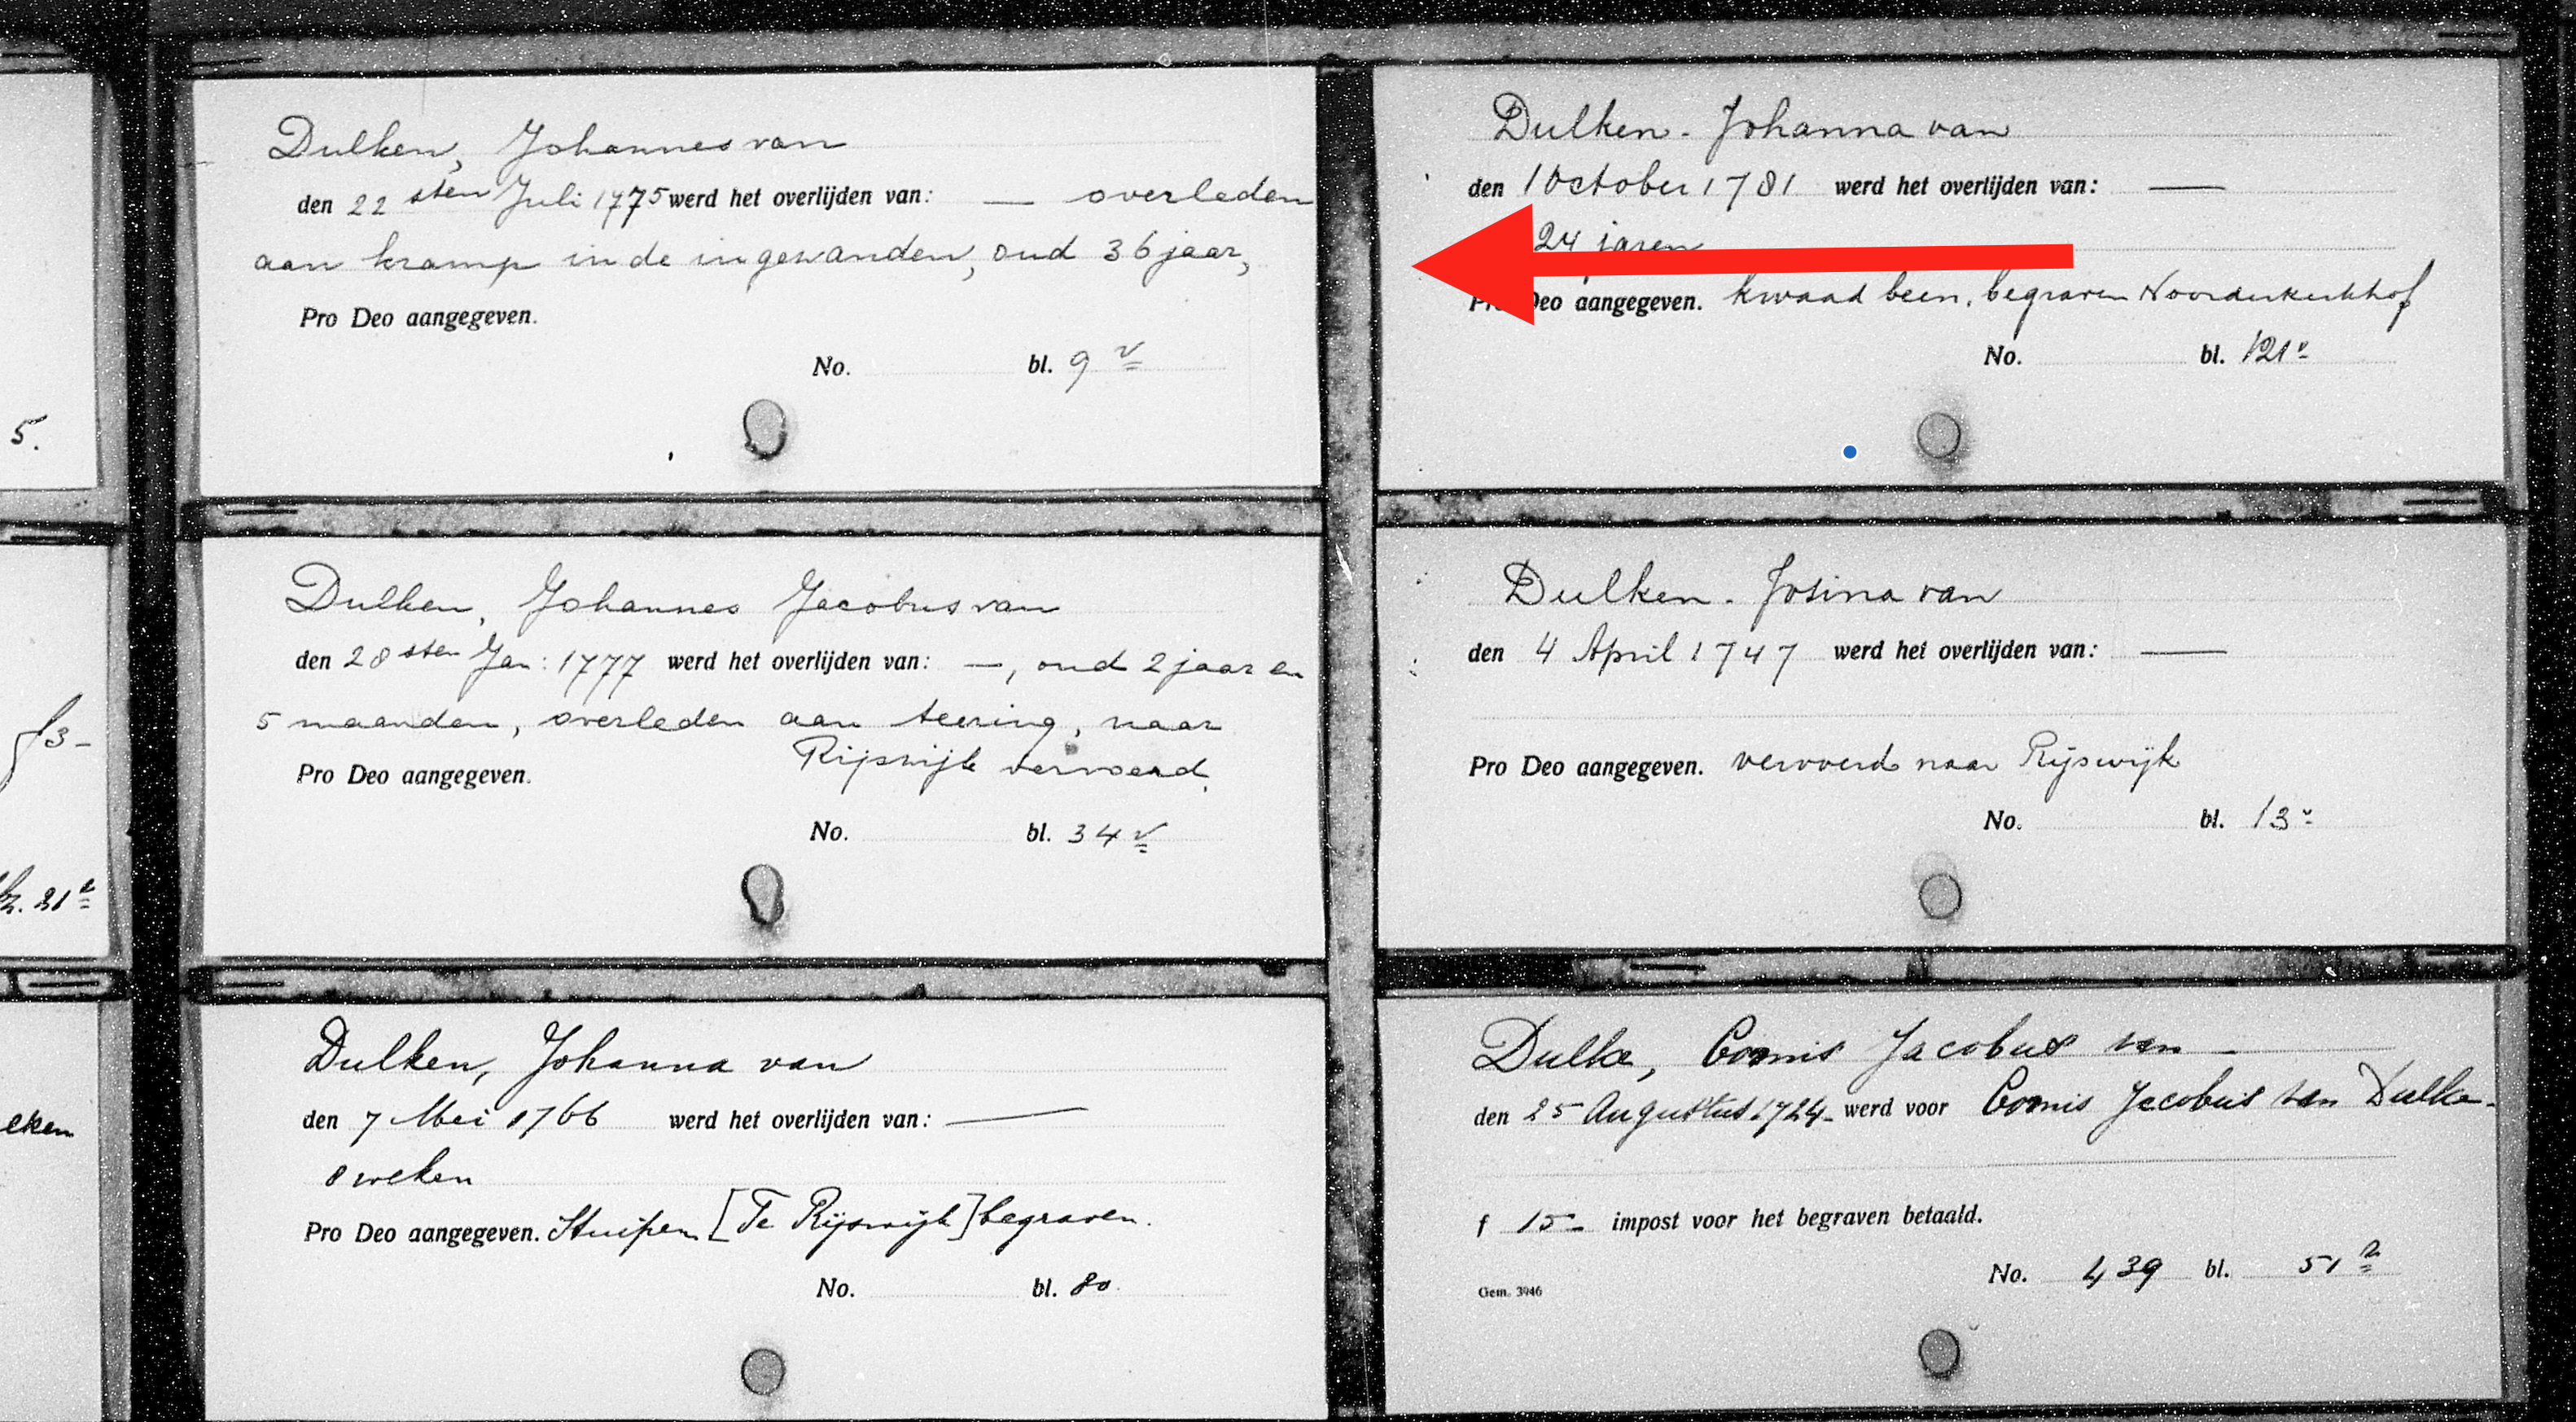 5.
f3-
21v
eken
Dulken, Johannes van
den 22 sten Juli 1775 werd het overlijden van: — overleden
aan kramp in de ingewanden, oud 36 jaar,
Pro Deo aangegeven.
No. bl. 9 v
Dulken, Johannes Jacobus van
den 28 sten Jan: 1777 werd het overlijden van: —, oud 2 jaar en
5 maanden, overleden aan teering, naar
Rijswijk vervoerd.
Pro Deo aangegeven.
No. bl. 34 v
Dulken, Johanna van
den 7 Mei 1766 werd het overlijden van: —
8 weken
Pro Deo aangegeven. Stuipen [Te Rijswijk] begraven.
No. bl. 80.
Dulken - Johanna van
den 1 October 1781 werd het overlijden van: —
24 jaren
Pro Deo aangegeven. kwaad been, begraven Noorderkerkhof
No. bl. 121v
Dulken - Josina van
den 4 April 1747 werd het overlijden van: —
Pro Deo aangegeven. vervoerd naar Rijswijk
No. bl. 13v
Dulke, Jacobus van -
den 25 Augustus 1724 - werd voor Jacobus van Dulke -
f 15 - impost voor het begraven betaald.
No. 439 bl. 51
Gem. 3946